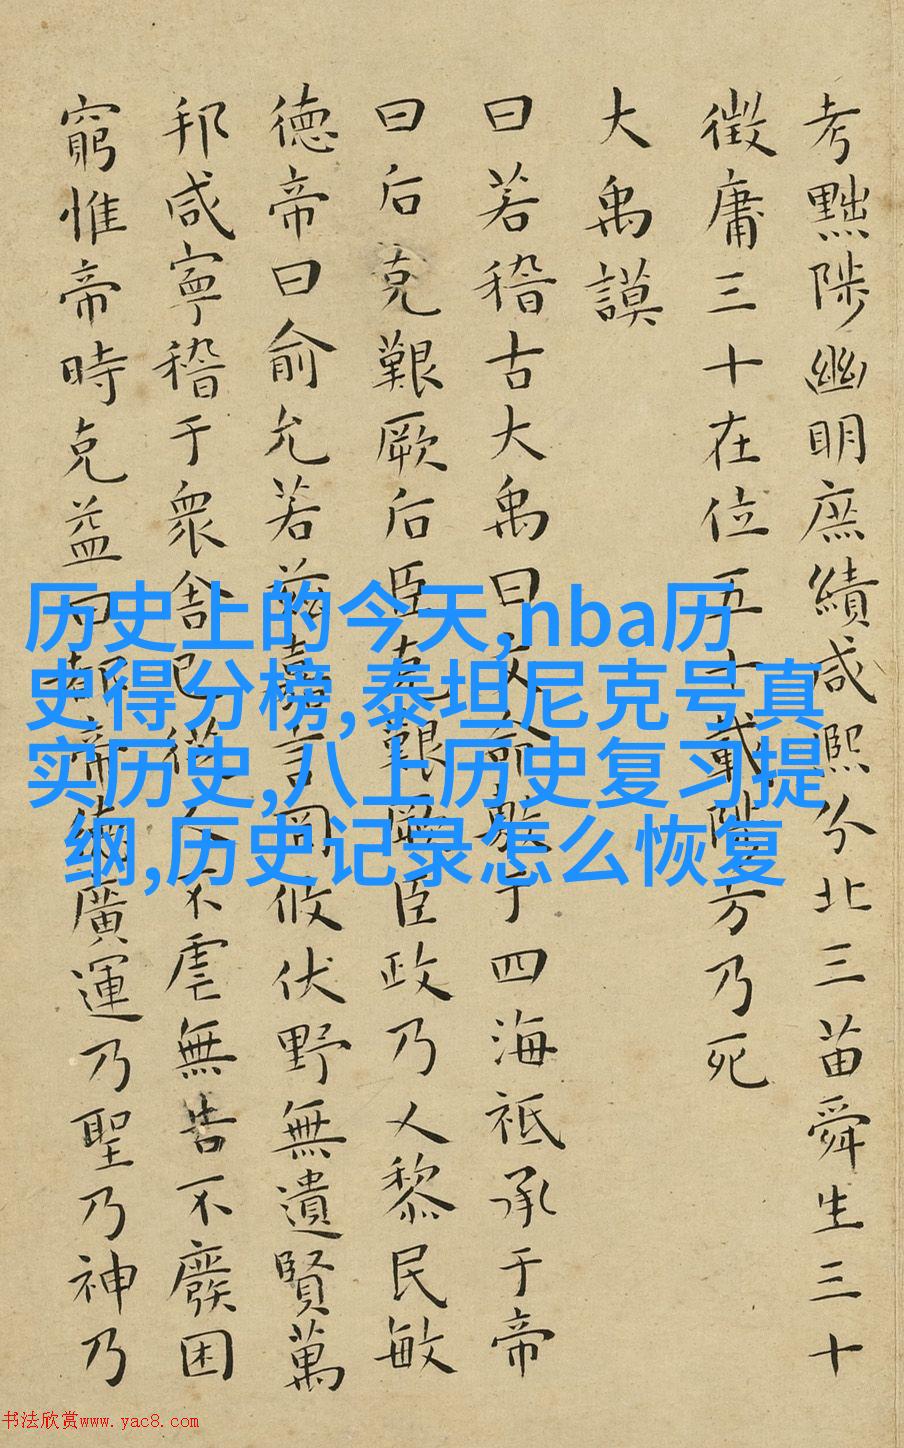 考黜陟幽明庶績咸熙分北三苗舜生三十
徵庸三十在位五十載陟方乃死
大禹謨
曰若稽古大禹曰文命敷于四海祗承于帝
曰后克艱厥后臣克艱厥臣政乃乂黎民敏
德帝曰俞允若茲嘉言罔攸伏野無遺賢萬
邦咸寧稽于眾舍己從人不虐無告不廢困
窮惟帝時克益曰都帝德廣運乃聖乃神乃
历史上的今天,nba历
史得分榜,泰坦尼克号真
实历史,八上历史复习提
纲,历史记录怎么恢复
书法欣赏www.yac8.com